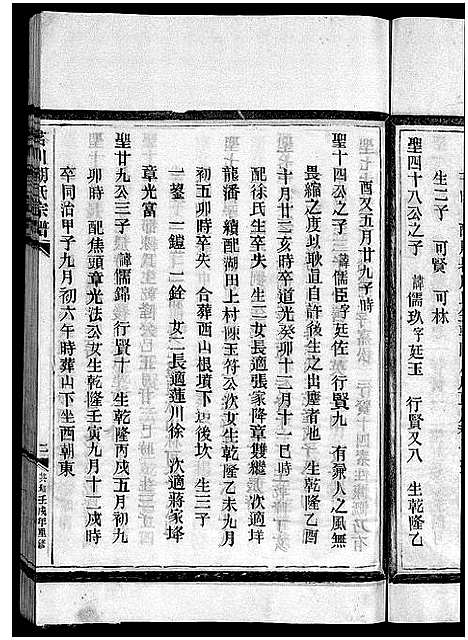 生二子 可賢 可林
聖四十八公之子 諱儒玖字廷玉 行賢又八 生乾隆乙
酉又五月廿九子時
聖十四公之子 諱儒臣字廷佐 行賢九 有豪人之風無
畏縮之度以耿直自許後生之出塵者也 生乾隆乙酉
十月廿三亥時卒道光癸卯十二月十一巳時
配徐氏生卒失 生三女長適張家降章 次適垟
龍潘 續配湖田上村陳玉符公次女生乾隆乙未九月
初五卯時卒失 合葬西山根墳下边後坎 生三子
一鋆 二鎧 三銓 女二長適蓮川徐 次適蔣家垟
章光富
聖廿九公三子 諱儒錦 行賢十 生乾隆丙戌五月初九
卯時 配焦頭章光法公女生乾隆壬寅九月十二戌時
卒同治甲子九月初六午時葬山下坐西朝東
胡氏宗譜
二
壬戌年重修